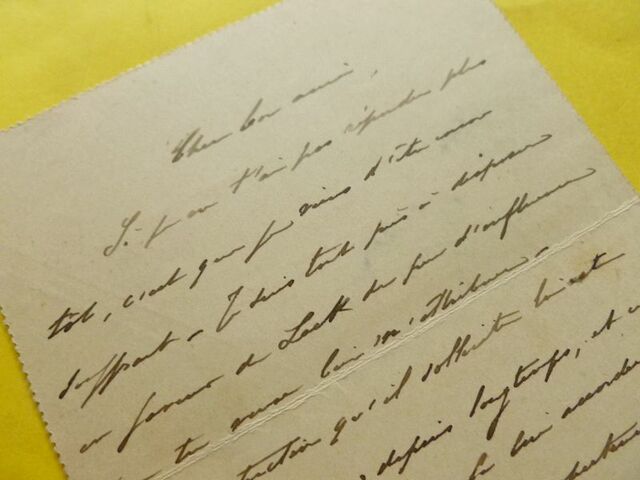 Cher bon ami,
Si je ne t'ai pas répondu plus
tôt, c'est que je viens d'être un
souffrant - Je suis tout prêt à disposer
en faveur de Lack du peu d'influence
que tu veux bien m'attribuer -
qu'il sollicite lui est
, depuis longtemps, et
lui accorder